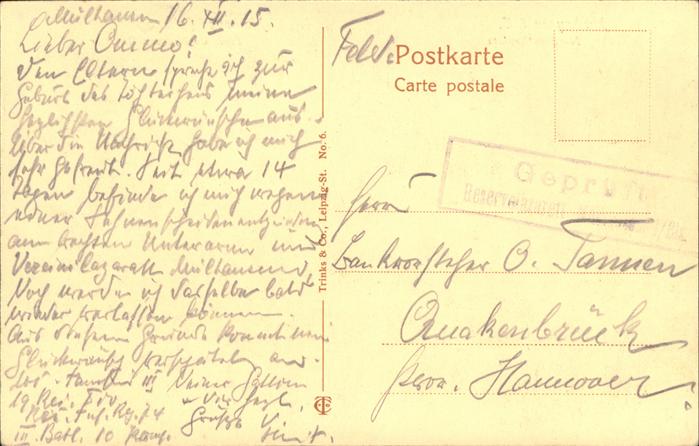 Mülhausen 16. XII. 15.
Lieber Onno!
Den Eltern spreche ich zur
Geburt des Töchterchens meine
herzlichsten Glückwünsche aus.
Über die Nachricht habe ich mich
sehr gefreut. Seit etwa 14
Tagen befinde ich mich wegen
einer Sehnenscheidenentzündung
am rechten Unterarm im
Vereinslazarett Mülhausen.
Noch werde ich dasselbe bald
wieder verlassen können.
Aus diesem Grunde kommt mein
Glückwunsch verspätet an.
III Deiner Gattin
19 Res. Div. u. Dir herzl.
Res. Inf. Rg. 74 Grüße
III. Batl. 10 Komp.
Trinks & Co., Leipzig-St. No. 6.
Feld-Postkarte
Carte postale
Geprüft
Herrn
Bankvorsteher O. Tannen
Quakenbrück
Prov. Hannover.